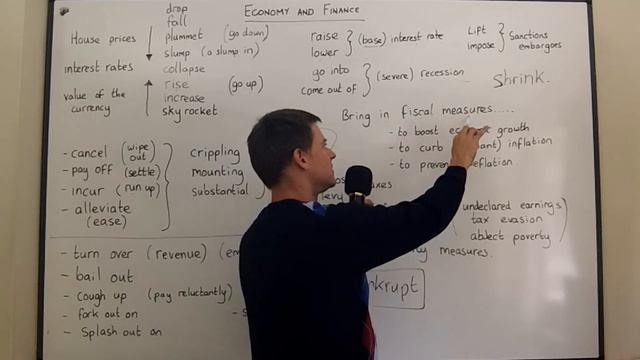 ECONOMY AND FINANCE
drop
fall
plummet (go down)
slump (a slump in)
collapse
House prices
interest rates
value of the
currency
rise (go up)
increase
sky rocket
raise
lower
(base) interest rate
go into
come out of
(severe) recession
Lift
impose
Sanctions
embargoes
Shrink.
Bring in fiscal measures.....
- to boost growth
- to curb inflation
- to
- cancel (wipe out)
- pay off (settle)
- incur (run up)
- alleviate
(ease)
crippling
mounting
substantial
undeclared earnings
tax evasion
abject poverty
measures.
- turn over (revenue)
- bail out
- Cough up (pay reluctantly)
- fork out on
- Splash out on